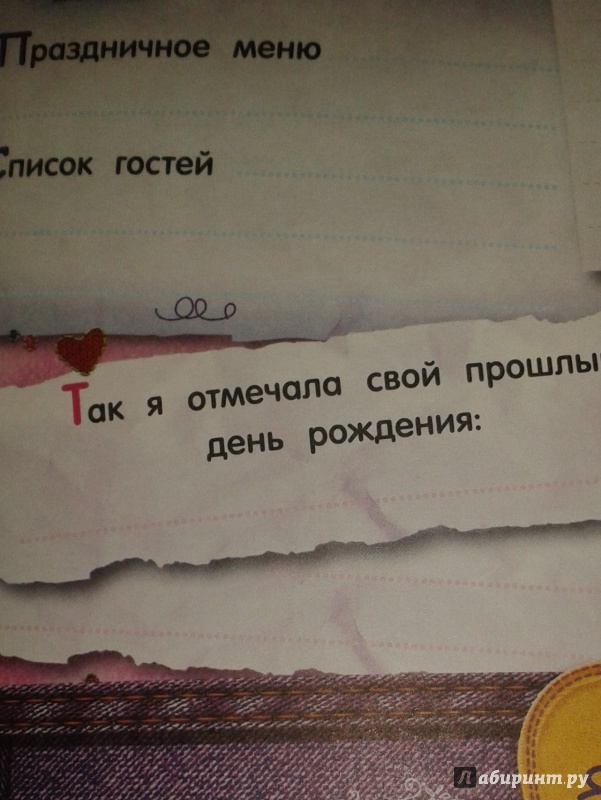 Праздничное меню
Список гостей
Так я отмечала свой прошлы
день рождения:
Лабиринт.ру